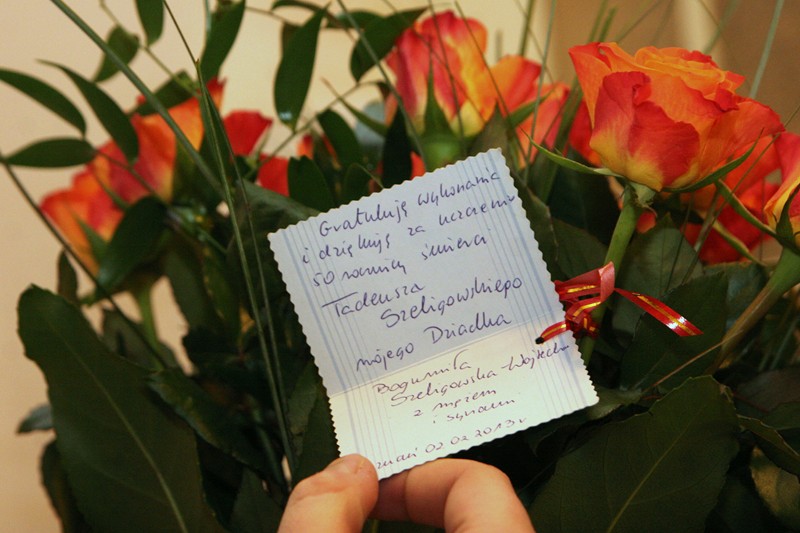 Gratuluję wykonania
i dziękuję za uczczenie
50 rocznicy śmierci
Tadeusza
Szeligowskiego
mojego Dziadka
Bogumiła
Szeligowska-Wojtecka
z mężem
i synami
znań 02.02.2013 r